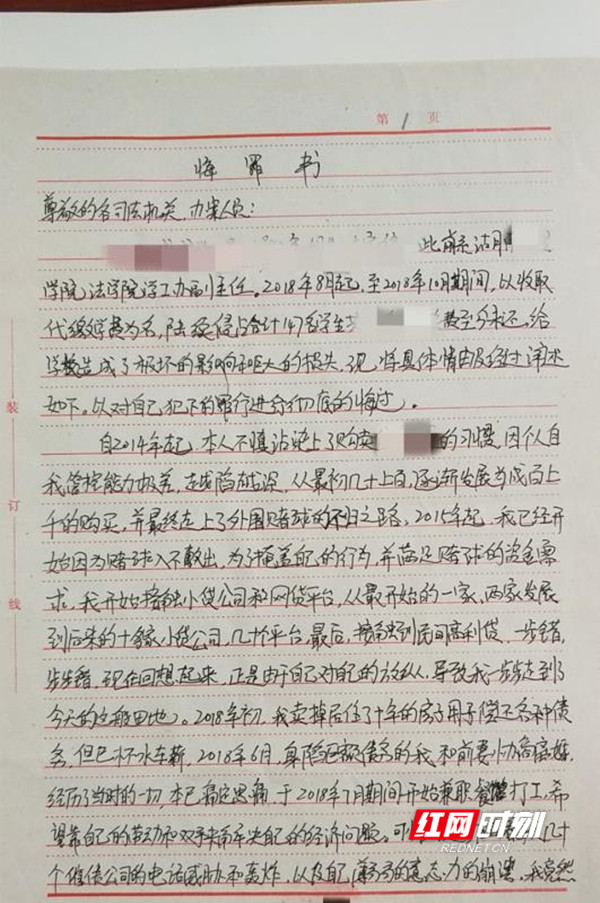 第 1 页
悔罪书
尊敬的各司法机关、办案人员：
此前系沽
学院法学院学工办副主任。2018年8月起，至2018年10月期间，以收取
代缴学费为名，陆续侵占合计147名学生 至今未还，给
学校造成了极坏的影响和巨大的损失，现将具体情由及经过陈述
如下，以对自己犯下的罪行进行彻底的悔过。
自2014年起，本人不慎沾染上了购 的习惯，因个人自
我管控能力极差，越陷越深，从最初几十上百，逐渐发展为成百上
千的购买，并最终走上了外围赌球的不归之路。2015年起，我已经开
始因为赌球入不敷出，为了掩盖自己的行为，并满足赌球的资金需
求，我开始接触小贷公司和网贷平台，从最开始的一家、两家发展
到后来的十多家小贷公司，几十个平台，最后，接触到民间高利贷，一步错，
步步错，现在回想起来，正是由于自己对自己的放纵，导致我一步步走到了
今天的这般田地。2018年初，我卖掉居住了十年的房子用于偿还各种债
务，但已杯水车薪，2018年6月，身陷巨额债务的我，和前妻协商离婚，
经历了当时的一切，本已痛定思痛，于2018年7月期间开始兼职 打工，希
望靠自己的劳动和双手来解决自己的经济问题。可 几十
个催债公司的电话威胁和轰炸，以及自己薄弱的意志力的崩溃，我竟然
装
订
线
红网时刻
REDNET.CN